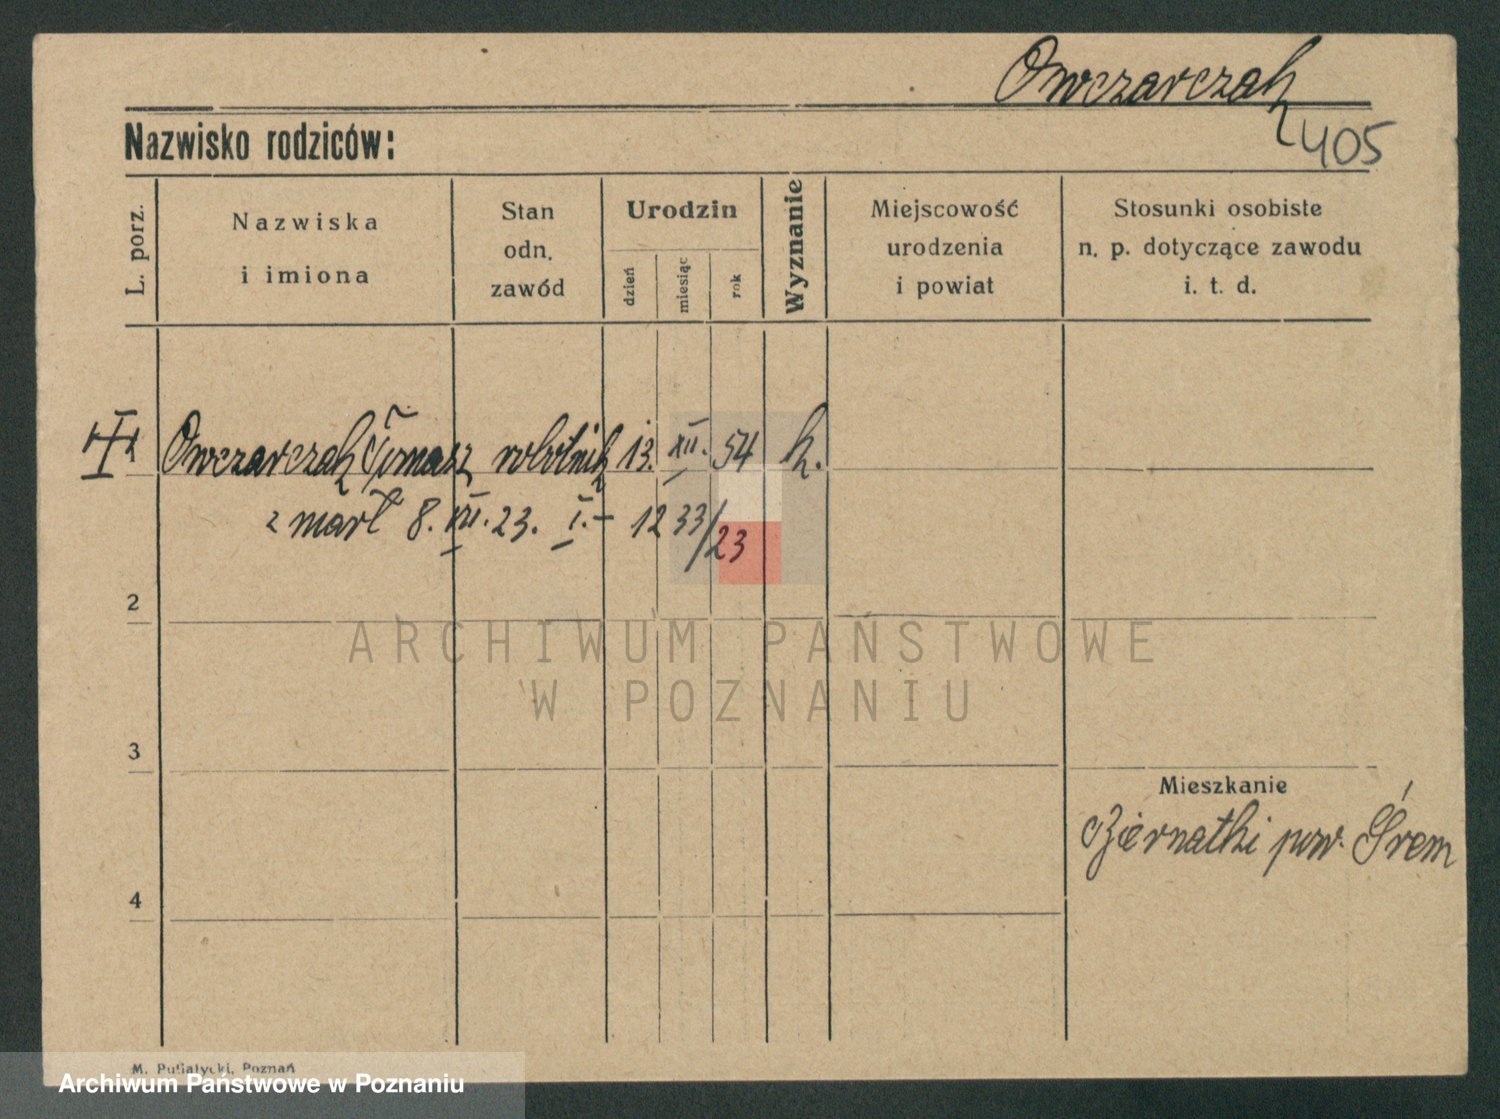 Owczarczak
405
Nazwisko rodziców:
L. porz.
Nazwiska
i imiona
Stan
odn.
zawód
Urodzin
dzień
miesiąc
rok
Wyznanie
Miejscowość
urodzenia
i powiat
Stosunki osobiste
n. p. dotyczące zawodu
i. t. d.
1 Owczarczak Tomasz robotnik 13. XII. 54 k.
zmarł 8. XII. 23. I. - 1233/23
2
3
4
Mieszkanie
Biernatki pow. Śrem
ARCHIWUM PAŃSTWOWE
W POZNANIU
M. Putiatycki, Poznań
Archiwum Państwowe w Poznaniu